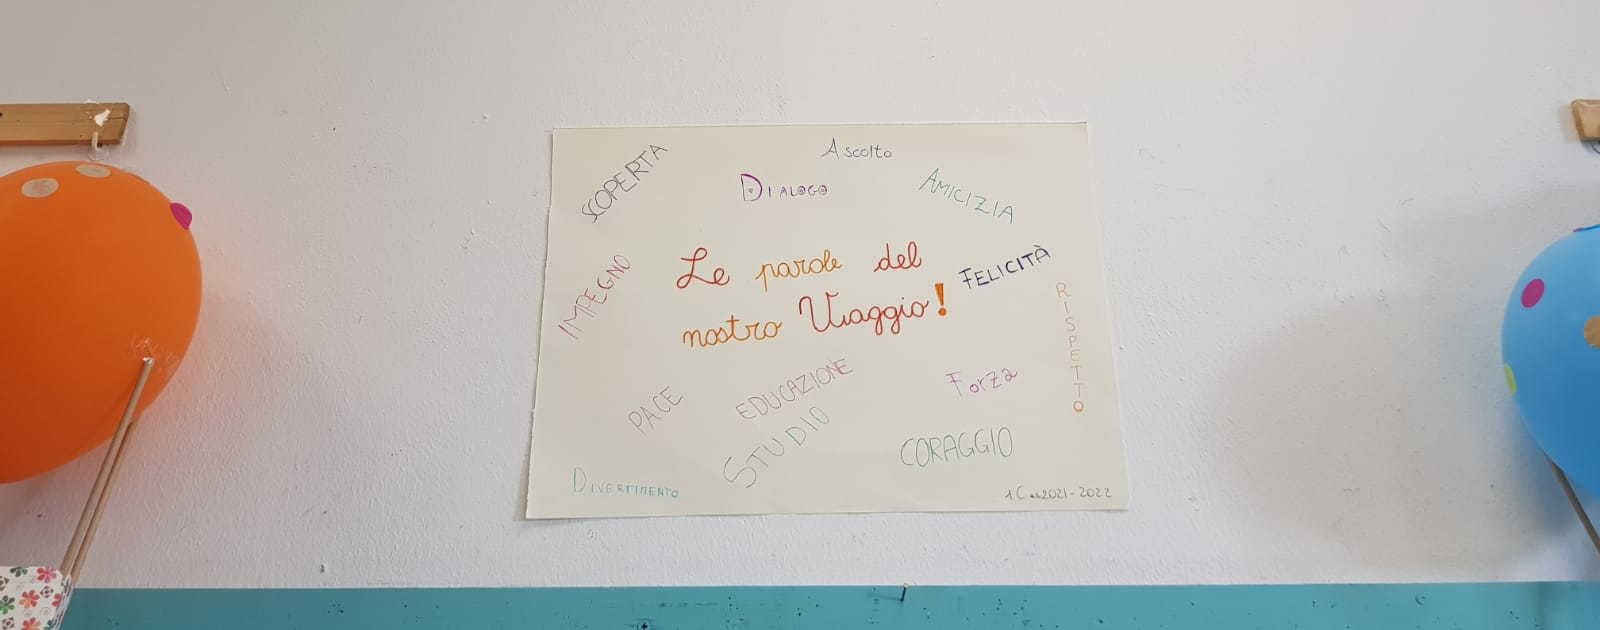 Ascolto
SCOPERTA
DIALOGO
AMICIZIA
Le parole del
nostro Viaggio!
FELICITÀ
IMPEGNO
RISPETTO
PACE
EDUCAZIONE
Forza
STUDIO
CORAGGIO
DIVERTIMENTO
1C a.s 2021-2022